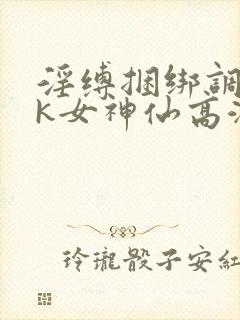 淫缚捆绑調
K女神仙高
玲瓏骰子安紅